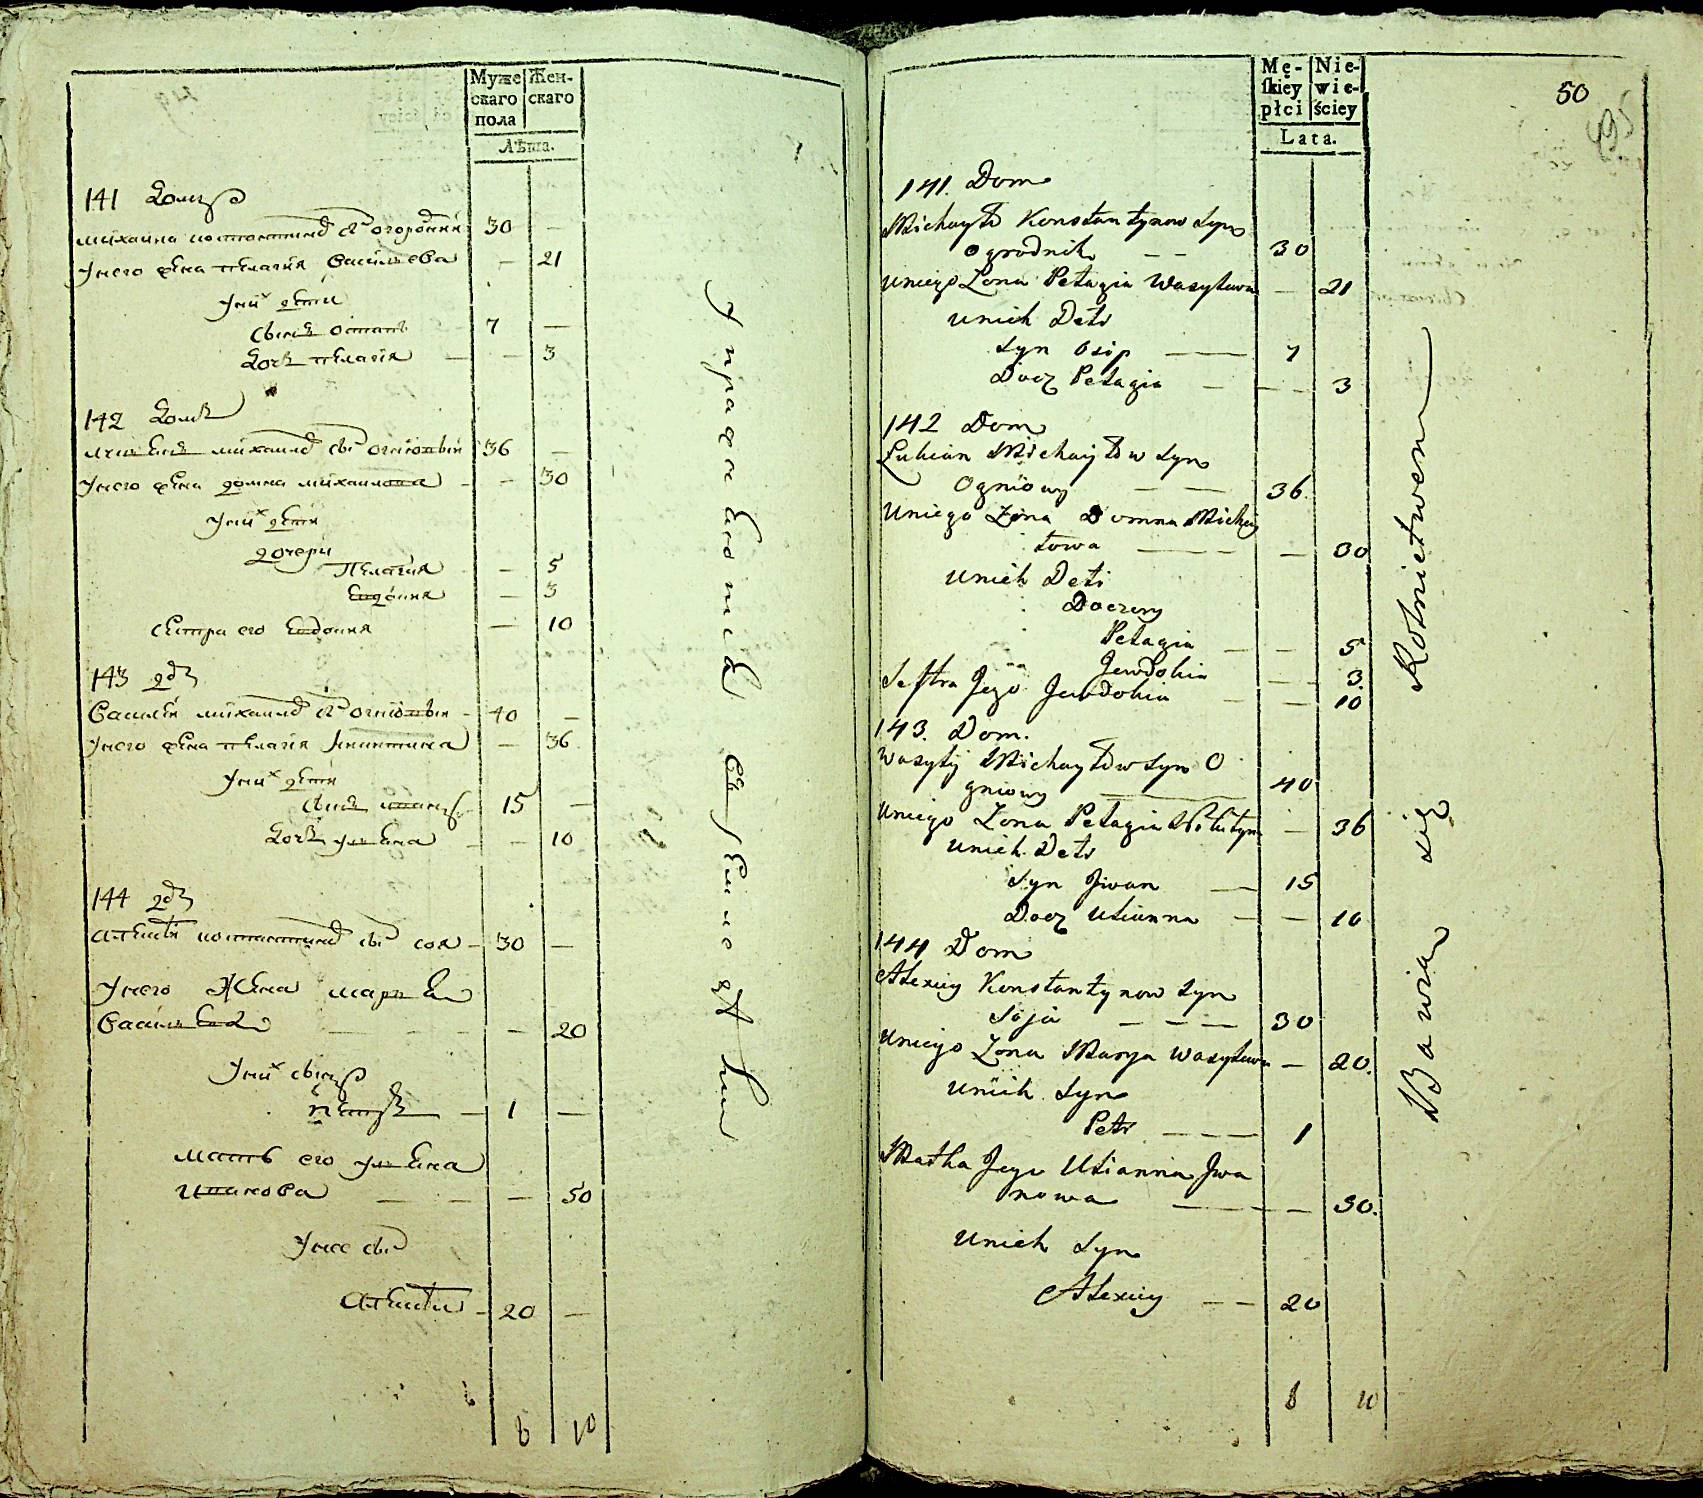 Муже
скаго
пола
Жен-
скаго
Лѣта.
141 домъ
михаила константинов сн огородник 30 —
У него жена пелагия васильева — 21
У них дети
сынъ осипъ 7 —
дочь пелагия — — 3
142 домъ
михаилов сн огнiовый 36 —
У него жена домна михаилова — — 30
У них дети
дочери
Пелагия — 5
Евдокия — 3
сестра его Евдокия — 10
143 д
Василий михаилов сн огнiовый — 40 —
У него жена пелагия никитина — 36
У них дети
сынъ иванъ 15 —
дочь улиена — — 10
144 д
алексей константинов сн соя — 30 —
У него Жена мария
Васильева — — — — 20
У них сынъ
петръ — 1 —
мать его улиена
иванова — — — 50
У нее сын
алексей — 20 —
8 10
Упражняются в земледелии
50
Mę-
skiey
płci
Nie-
wie-
ściey
Lata.
141. Dom
Michayło Konstantynow Syn
Ogrodnik — — 30
Uniego Zona Pelagia Wasylowa — 21
Unich Deti
Syn Osip — 7
Docz Pelagia — — — 3
142 Dom
Łukian Michayłow Syn
Ogniowy — — 36.
Uniego Zona Domna Michay
łowa — — 30
Unich Deti
Doczery
Pelagia — — 5
Jewdokia — 3.
Sestra Jego Jewdokia — — 10
143. Dom.
Wasyly Michayłow Syn O
gniowy — 40
Uniego Zona Pelagia Nikityn — 36
Unich Deti
Syn Jwan — 15
Docz Ulianna — — 10
144 Dom
Alexiey Konstantynow Syn
Soja — — — 30
Uniego Zona Marya Wasylowa — 20.
Unich Syn
Petr — — — 1
Matka Jego Ulianna Jwa
nowa — — — — 50.
Unich Syn
Alexiey — — 20
8 10
Bawią się Rolnictwem